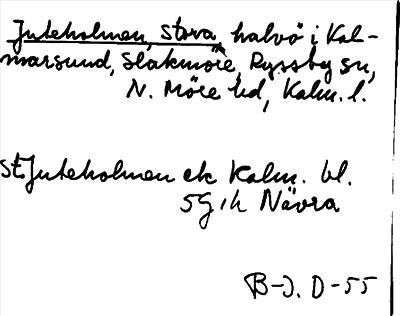 Juteholmen, Stora, halvö i Kal-
marsund, Slakmöre, Ryssby sn,
N. Möre hd, Kalm. l.
St. Juteholmen ek Kalm. bl.
5G ih Nävra
B-J. D-55